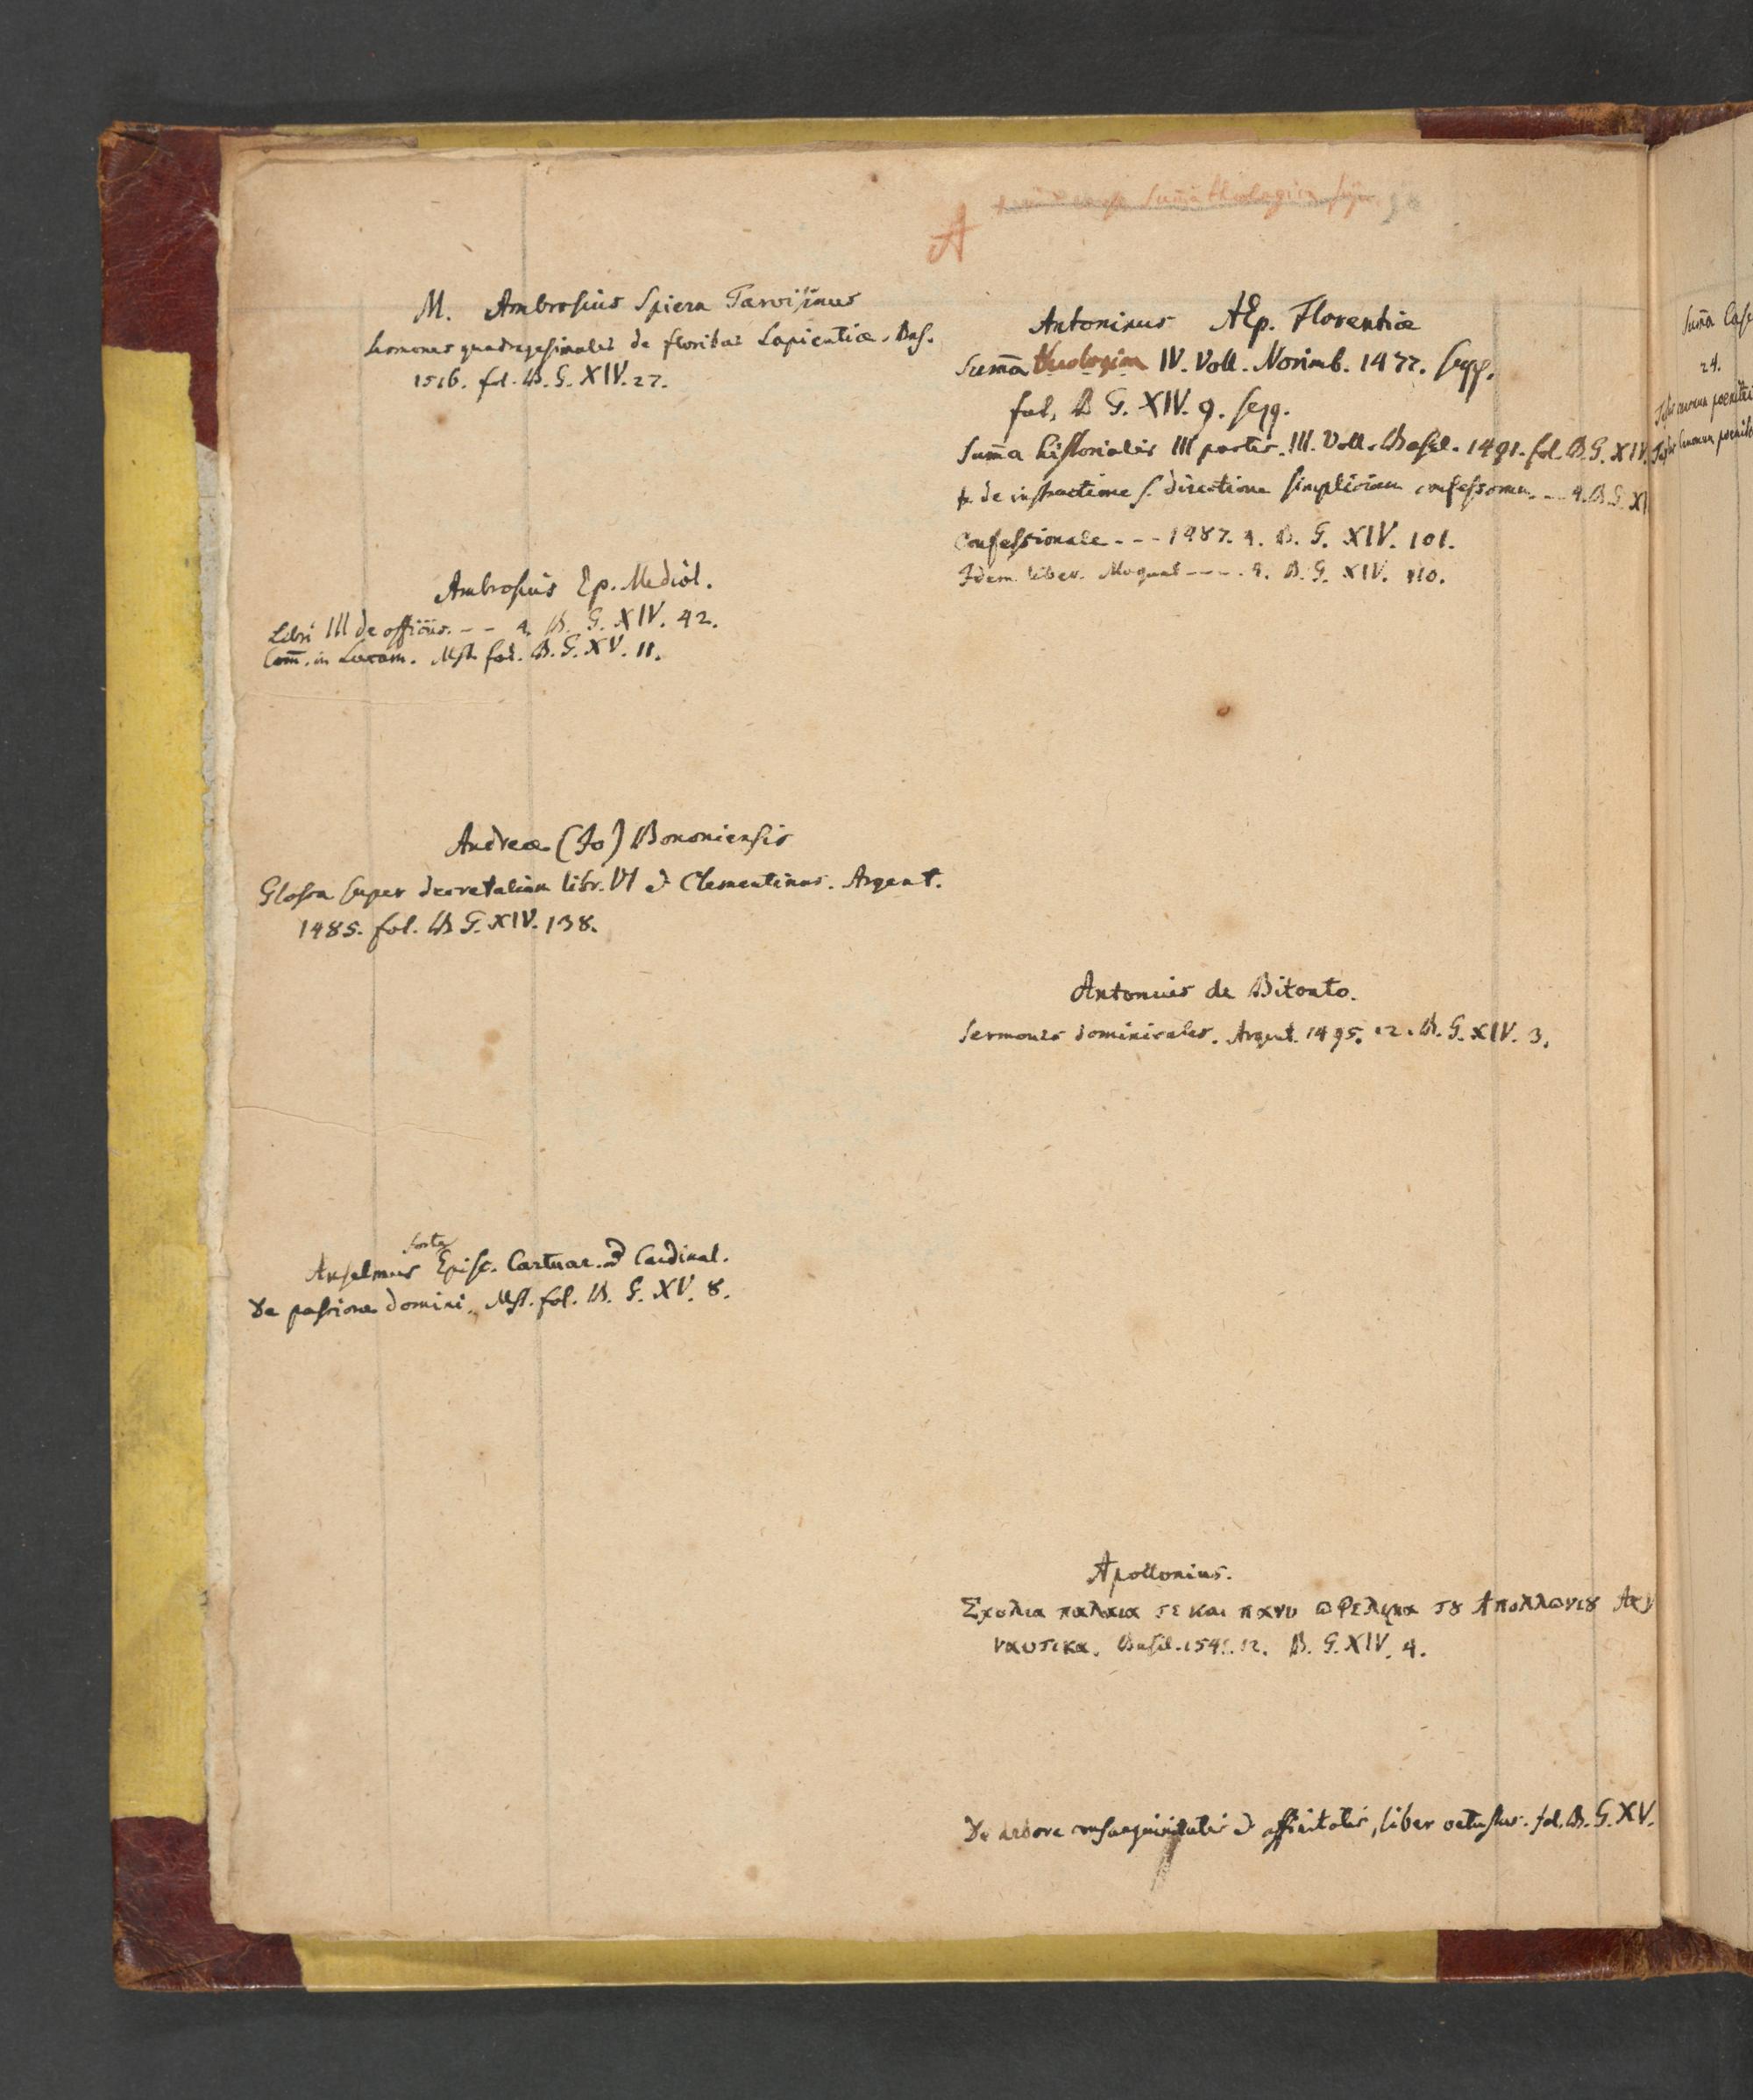 A
Summa theologica
M. Ambrosius Spiera Tarvisinus
Sermones quadragesimales de floribus Sapientiæ. Bas.
1516. fol. B. G. XIV. 27.
Ambrosius Ep. Mediol.
Libri III de officiis. - - 4. B. G. XIV. 42.
Com̅. in Lucam. Mst. fol. B. G. XV. 11.
Andreæ (Jo) Bononiensis
Glossa super decretalium libr. VI et Clementinas. Argent.
1485. fol. B G. XIV. 138.
forte
Anselmus Episc. Cartuar. et Cardinal.
De passione domini. Mst. fol. B. G. XV. 8.
Antoninus AEp. Florentiæ
Sum̅a theologica IV. Voll. Norimb. 1477. seqq.
fol. B G. XIV. 9. seqq.
Sum̅a historialis III partis. III. Voll. Basil. 1491. fol. B. G. XIV.
de instructione s. directione simplicium confessorum - - 4. B. G. XI
Confessionale - - - 1487. 4. B. G. XIV. 101.
Idem liber. Mogunt - - - . 4. B. G. XIV. 110.
Antonius de Bitonto.
Sermones dominicales. Argent. 1495. 12. B. G. XIV. 3.
Apollonius.
Σχολια παλαια τε και πανυ ωφελιμα τȣ Απολλωνιȣ Αργ
ναυτικα. Basil. 1541. 12. B. G. XIV. 4.
De arbore consanguinitatis et affinitatis, liber vetustus. fol. B. G. XV.
Sum̅a Case
24.